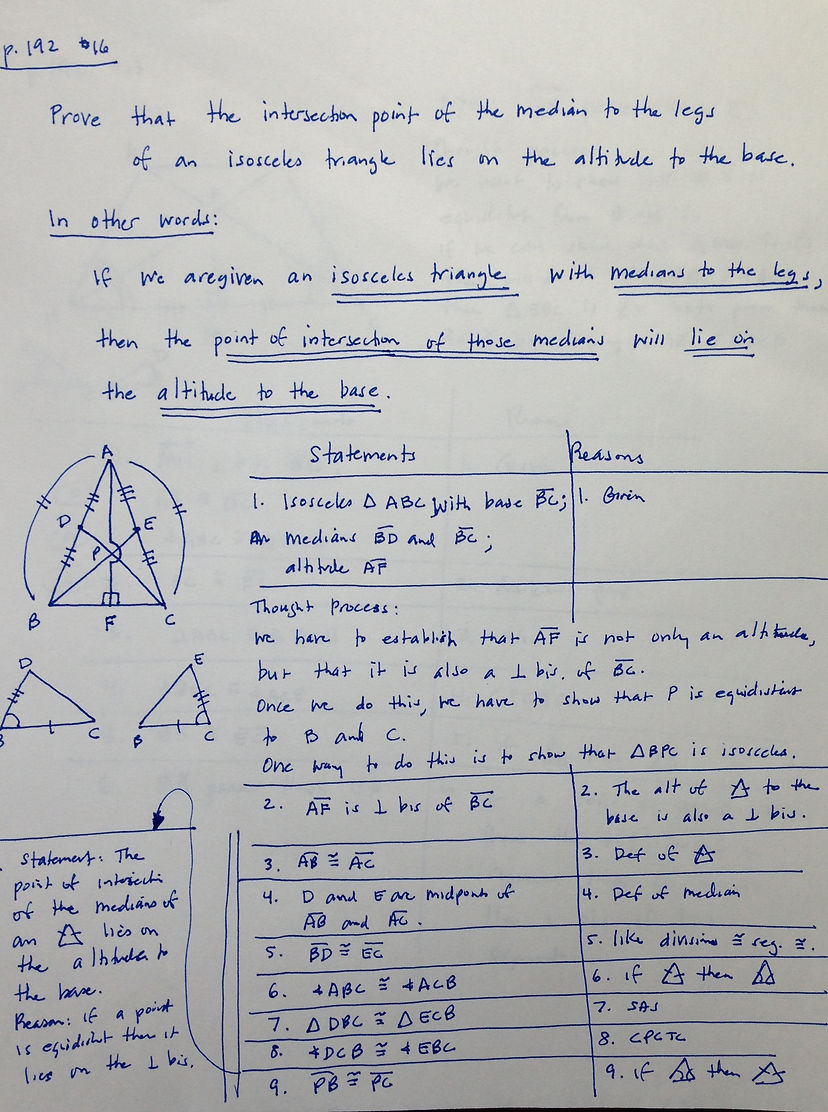 p. 192 #16
Prove that the intersection point of the median to the legs
of an isosceles triangle lies on the altitude to the base.
In other words:
If we are given an isosceles triangle with medians to the legs,
then the point of intersection of those medians will lie on
the altitude to the base.
A
D
E
P
B
F
C
Statements
Reasons
1. Isosceles △ ABC with base BC;
medians BD and BC;
altitude AF
1. Given
Thought Process:
We have to establish that AF is not only an altitude,
but that it is also a ⊥ bis. of BC.
Once we do this, we have to show that P is equidistant
to B and C.
One way to do this is to show that △BPC is isosceles.
D
B
C
E
B
C
2. AF is ⊥ bis of BC
2. The alt of △ to the
base is also a ⊥ bis.
3. AB ≅ AC
3. Def of △
4. D and E are midpoints of
AB and AC.
4. Def of median
5. BD ≅ EC
5. like divisions ≅ seg. ≅.
6. ∡ABC ≅ ∡ACB
6. if △ then △
7. △DBC ≅ △ECB
7. SAS
8. ∡DCB ≅ ∡EBC
8. CPCTC
9. PB ≅ PC
9. if △ then △
Statement: The
point of intersecti
of the medians of
an △ lies on
the altitude to
the base.
Reason: if a point
is equidist then it
lies on the ⊥ bis.